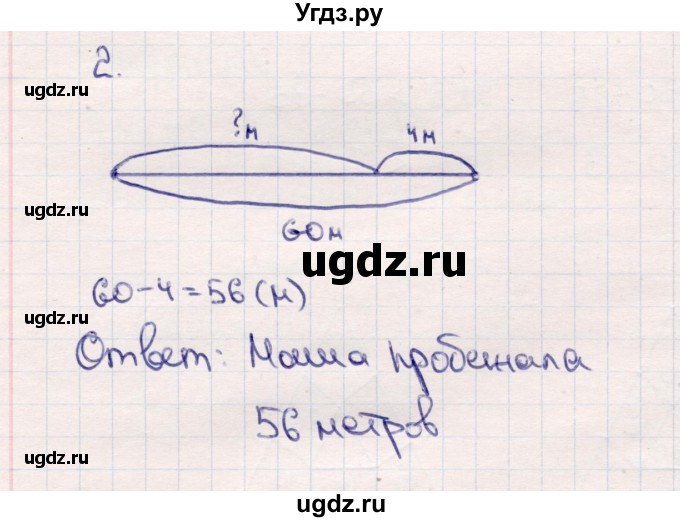 Угдз.ру
2.
ugdz.ru
?м
4м
ugdz.ru
60м
ugdz.ru
60-4=56 (м)
ugdz.ru
Ответ: Маша пробежала
56 метров
ugdz.ru
ugdz.ru